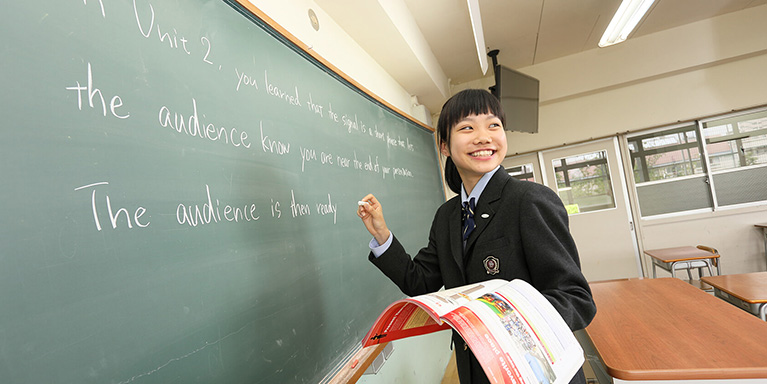 In Unit 2, you learned that the signal is a short phrase that lets
the audience know you are near the end of your presentation.
The audience is then ready